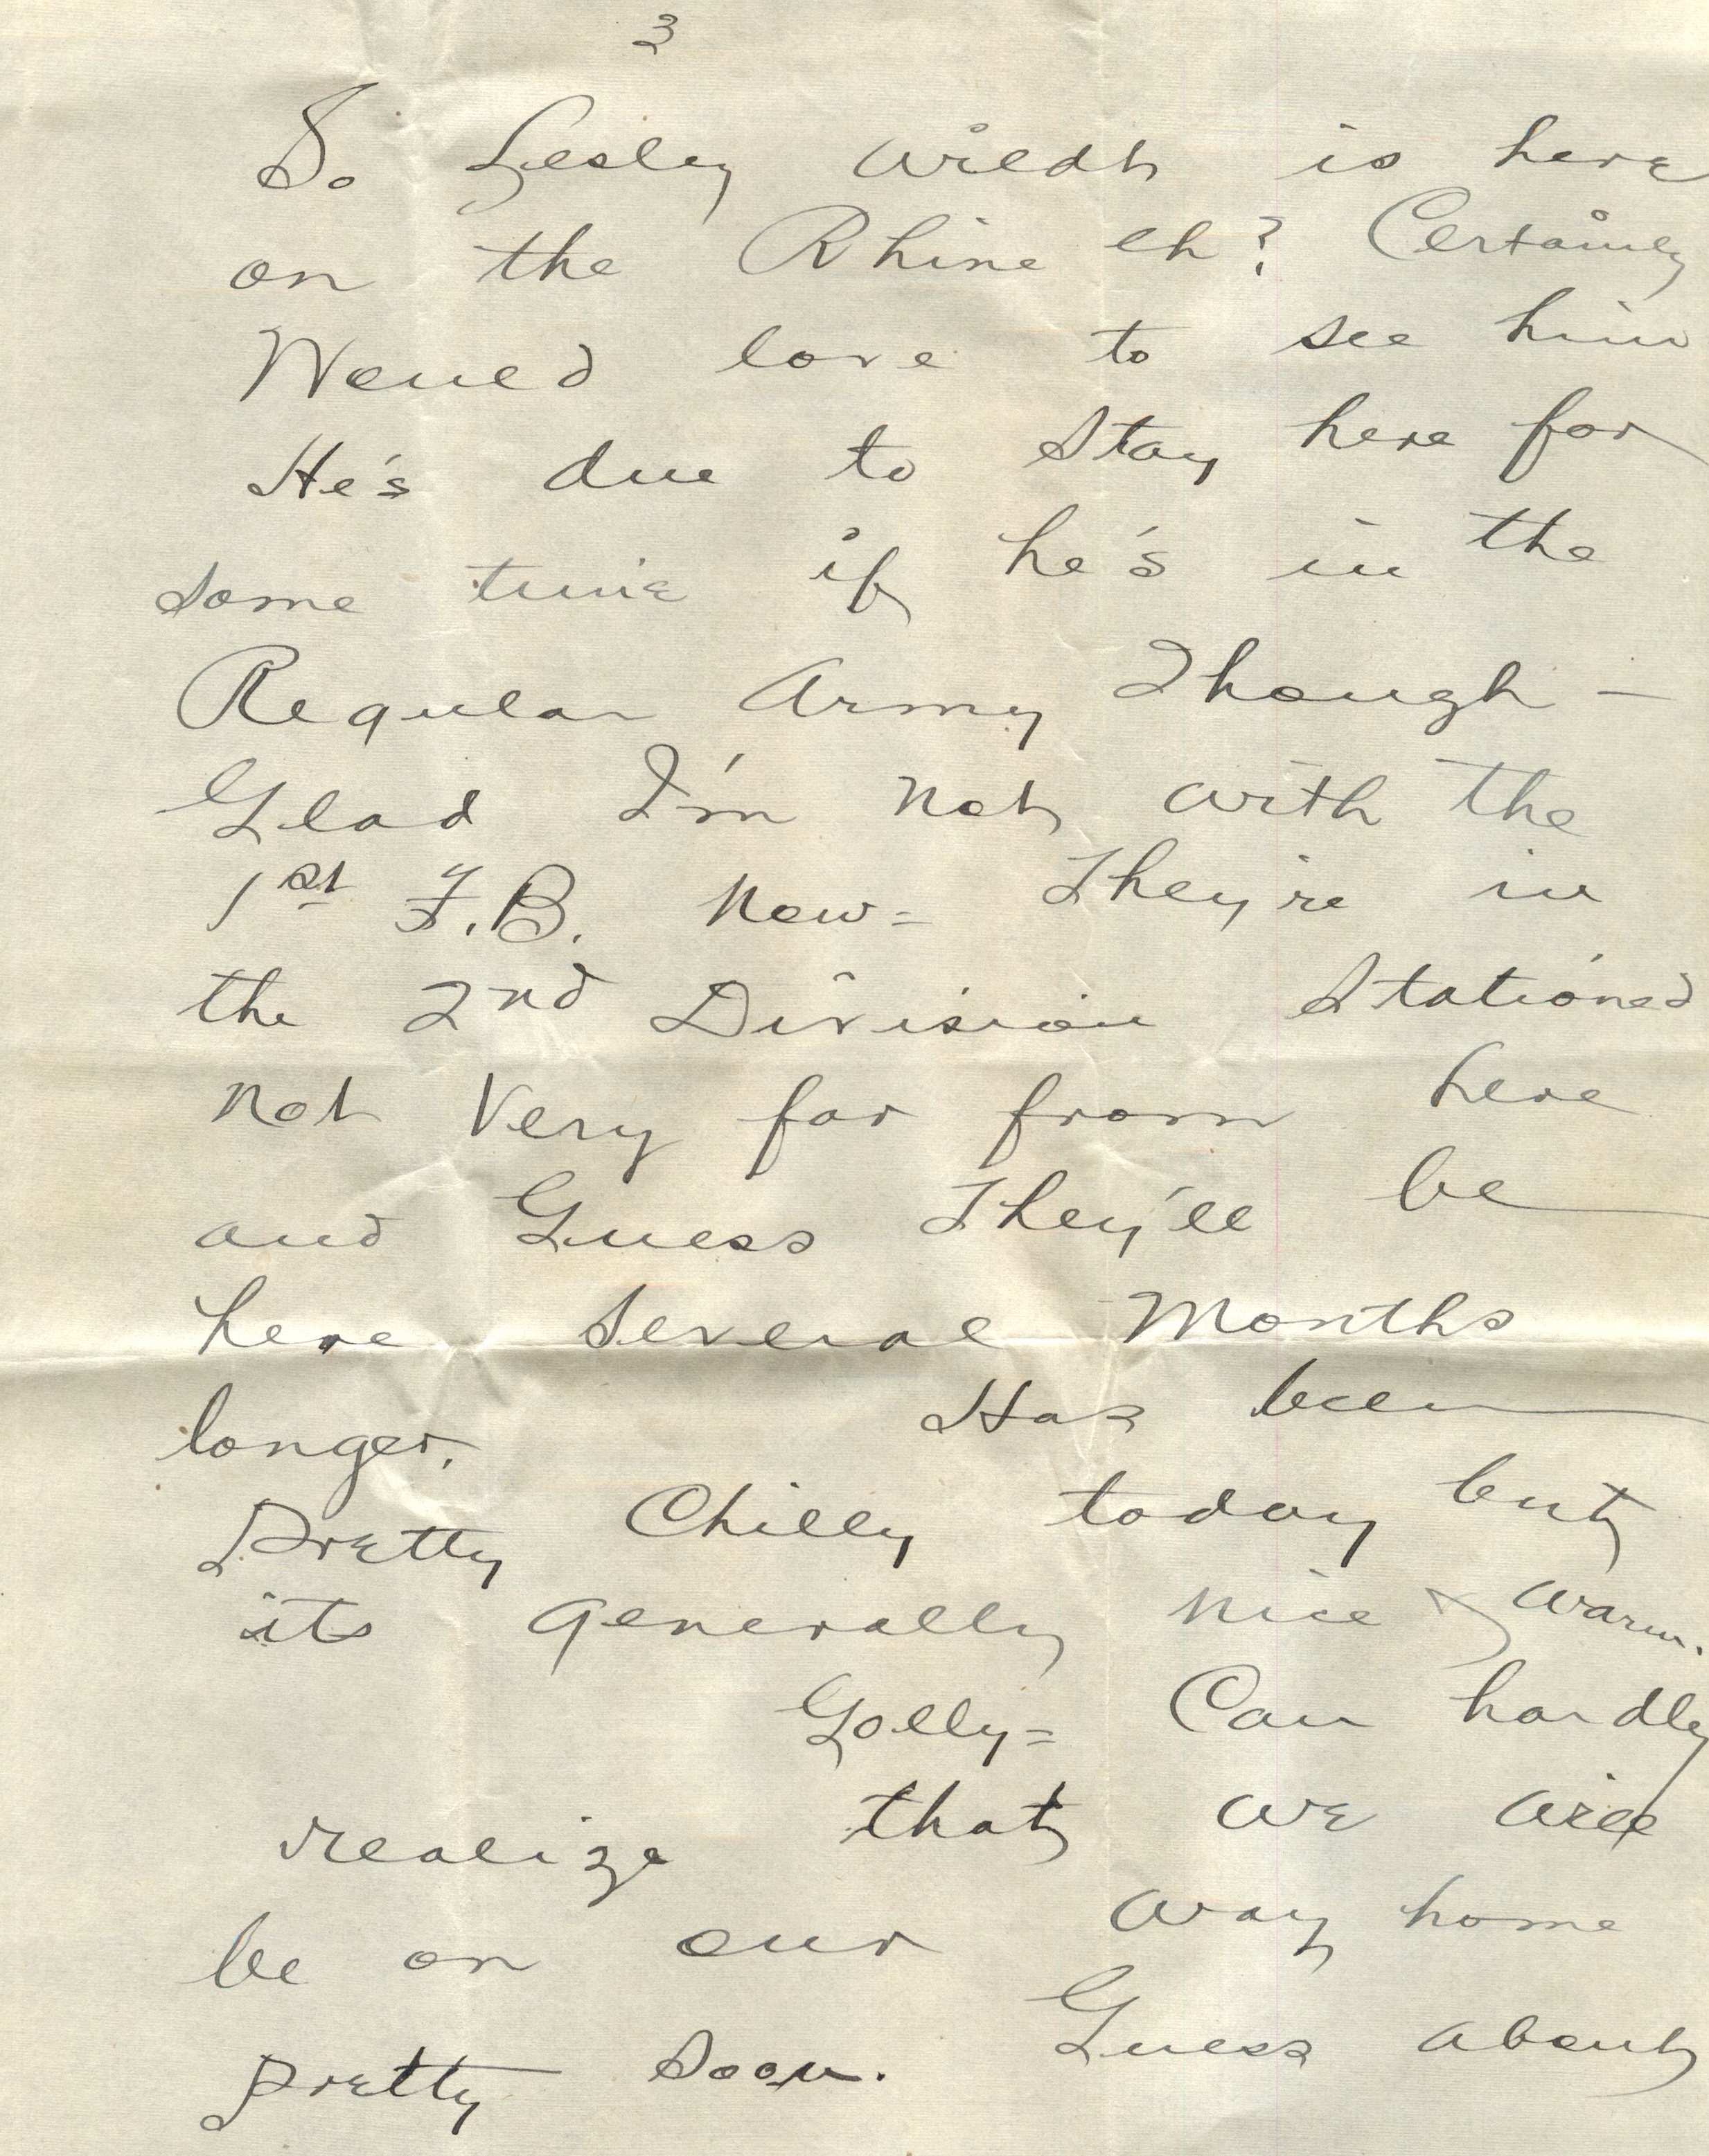 3
So Lesley Wiedt is here
on the Rhine eh? Certainly
Would love to see him
He's due to stay here for
some time if he's in the
Regular Army Though –
Glad I'm not with the
1st F.B. now= They're in
the 2nd Division Stationed
not Very far from here
and Guess They'll be
here Several Months
longer. Has been
pretty Chilly today but
its generally nice & warm.
Golly= Can hardly
realize that we will
be on our way home
pretty soon. Guess about